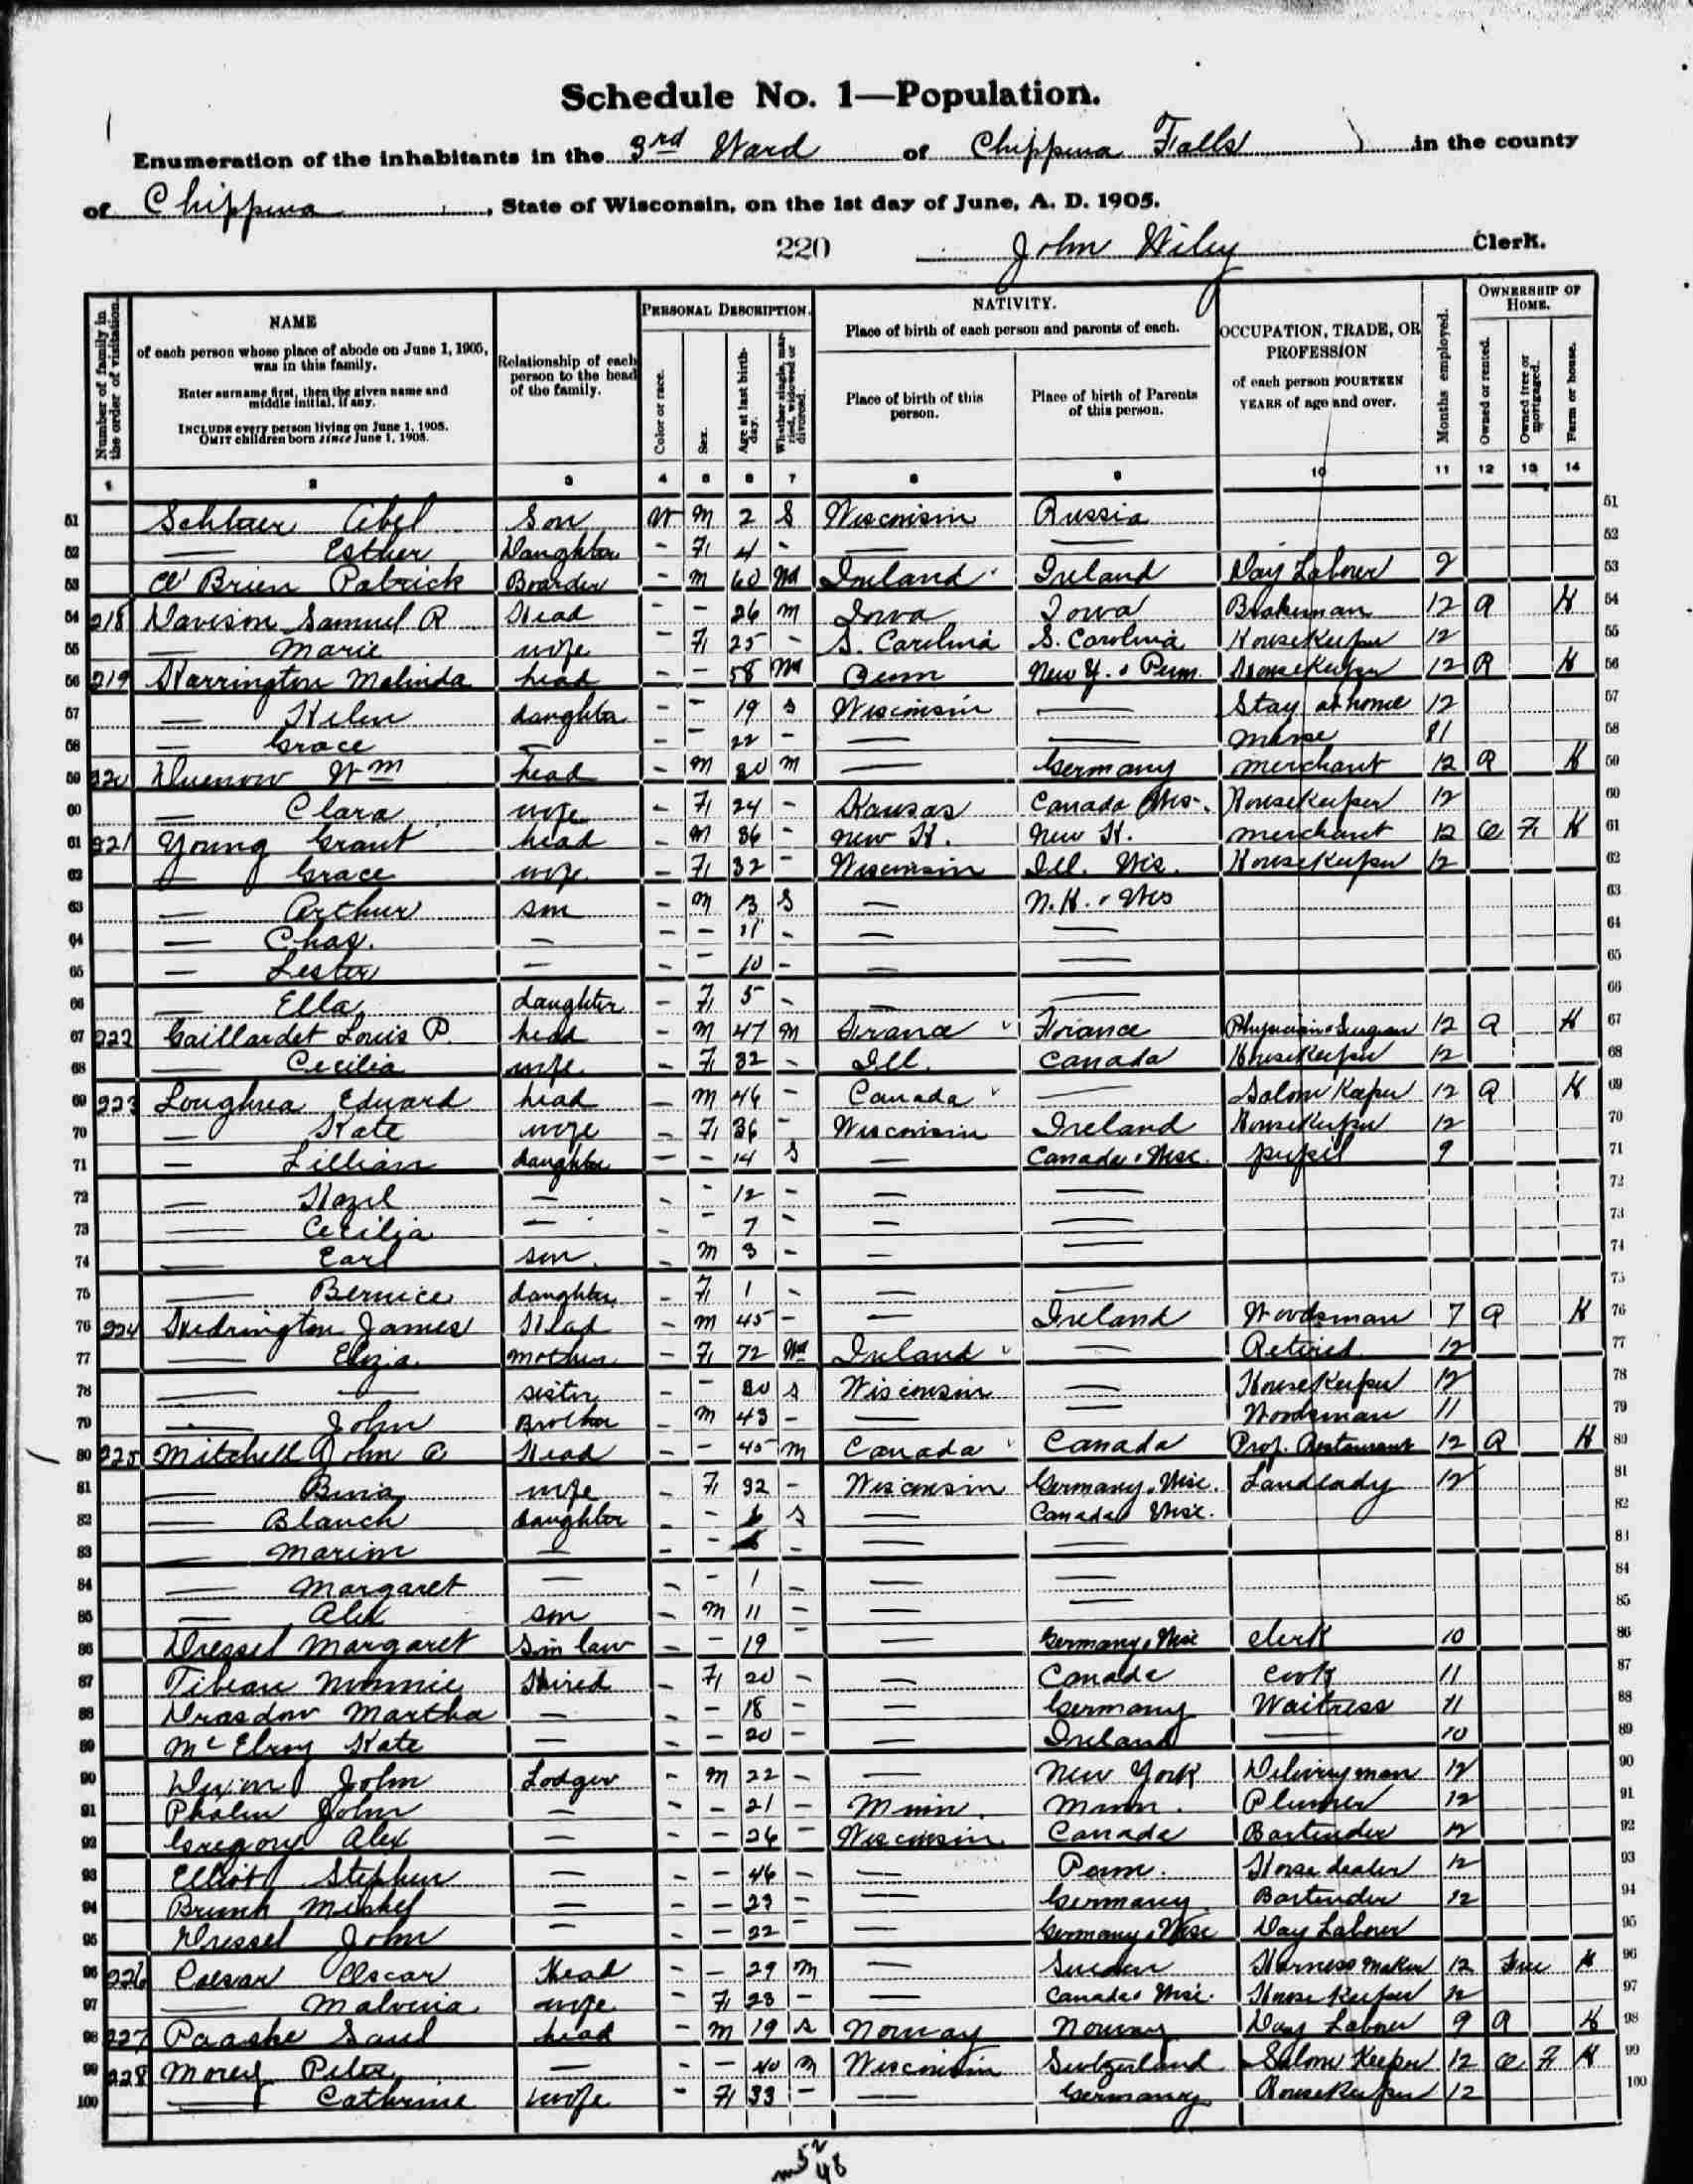 Schedule No. 1—Population.
Enumeration of the inhabitants in the 3rd Ward of Chippewa Falls in the county
of Chippewa, State of Wisconsin, on the 1st day of June, A. D. 1905.
220 John Wiley Clerk.
Number of family in the order of visitation.
NAME
of each person whose place of abode on June 1, 1905, was in this family.
Enter surname first, then the given name and middle initial, if any.
INCLUDE every person living on June 1, 1905.
OMIT children born since June 1, 1905.
Relationship of each person to the head of the family.
PERSONAL DESCRIPTION.
Color or race.
Sex.
Age at last birthday.
Whether single, married, widowed or divorced.
NATIVITY.
Place of birth of each person and parents of each.
Place of birth of this person.
Place of birth of Parents of this person.
OCCUPATION, TRADE, OR PROFESSION
of each person FOURTEEN YEARS of age and over.
Months employed.
OWNERSHIP OF HOME.
Owned or rented.
Owned free or mortgaged.
Farm or house.
1 2 3 4 5 6 7 8 9 10 11 12 13 14
51 Abel Son W M 2 S Wisconsin Russia 51
52 — Esther Daughter - F 4 - — — 52
53 O'Brien Patrick Boarder - M 60 Wd Ireland Ireland Day Laborer 2 53
54 218 Davison Samuel R Head - - 26 M Iowa Iowa Brakeman 12 R H 54
55 — Marie wife - F 25 - S. Carolina S. Carolina Housekeeper 12 55
56 219 Harrington Malinda head - - 58 Wd Penn New Y. & Penn. Housekeeper 12 R H 56
57 — Helen daughter - - 19 S Wisconsin — Stay at home 12 57
58 — Grace — - - 22 - — — 58
59 220 Duenow Wm head - M 30 M — Germany merchant 12 R H 59
60 — Clara wife - F 24 - Kansas Canada Wis. Housekeeper 12 60
61 221 Young Grant head - M 36 - New H. New H. merchant 12 O F H 61
62 — Grace wife - F 32 - Wisconsin Ill. Wis. Housekeeper 12 62
63 — Arthur son - M 13 S — N.H. & Wis 63
64 — Chas. — - - 11 - — — 64
65 — Lester — - - 10 - — — 65
66 — Ella daughter - F 5 - — — 66
67 222 Gaillardet Louis P. head - M 47 M France France Physician & Surgeon 12 R H 67
68 — Cecilia wife - F 32 - Ill. Canada Housekeeper 12 68
69 223 Loughrea Edward head - M 46 - Canada — Saloon Keeper 12 R H 69
70 — Kate wife - F 36 - Wisconsin Ireland Housekeeper 12 70
71 — Lillian daughter - - 14 S — Canada & Wisc. pupil 9 71
72 — Hazel — - - 12 - — — 72
73 — Cecilia — - - 7 - — — 73
74 — Earl son - M 3 - — — 74
75 — Bernice daughter - F 1 - — — 75
76 224 Hedrington James Head - M 45 - — Ireland Woodsman 7 R H 76
77 — Eliza mother - F 72 Wd Ireland — Retired 12 77
78 — — sister - - 30 S Wisconsin — Housekeeper 12 78
79 — John Brother - M 43 - — — Woodsman 11 79
80 225 Mitchell John C Head - - 45 M Canada Canada Prop. Restaurant 12 R H 80
81 — wife - F 32 - Wisconsin Germany & Wisc. Landlady 12 81
82 — Blanch daughter - - 6 S — Canada & Wisc. 82
83 — Marion — - - - — — 83
84 — Margaret — - - 1 - — — 84
85 — Alex son - M 11 - — — 85
86 Dressel Margaret Sin law - - 19 - — Germany & Wisc clerk 10 86
87 Tibeau Minnie Hired - F 20 - — Canada cook 11 87
88 Drasdow Martha — - - 18 - — Germany Waitress 11 88
89 McElroy Kate — - - 20 - — Ireland — 10 89
90 John Lodger - M 22 - — New York Deliveryman 12 90
91 Phalen John — - - 21 - Minn. Minn. Plumer 12 91
92 Gregory Alex — - - 26 - Wisconsin Canada Bartender 12 92
93 Elliott Stephen — - - 46 - — Penn. Horse dealer 12 93
94 — - - 23 - — Germany Bartender 12 94
95 Dressel John — - - 22 - — Germany & Wisc Day Laborer 95
96 226 Caesar Oscar Head - - 29 M — Sweden Harness Maker 12 Free H 96
97 — Malvina wife - F 23 - — Canada & Wisc. Housekeeper 12 97
98 227 Paaske Saul head - M 19 S Norway Norway Day Laborer 9 R H 98
99 228 Peter — - - 40 M Wisconsin Switzerland Saloon Keeper 12 O F H 99
100 — Catherine wife - F 33 - — Germany Housekeeper 12 100
m 52
48